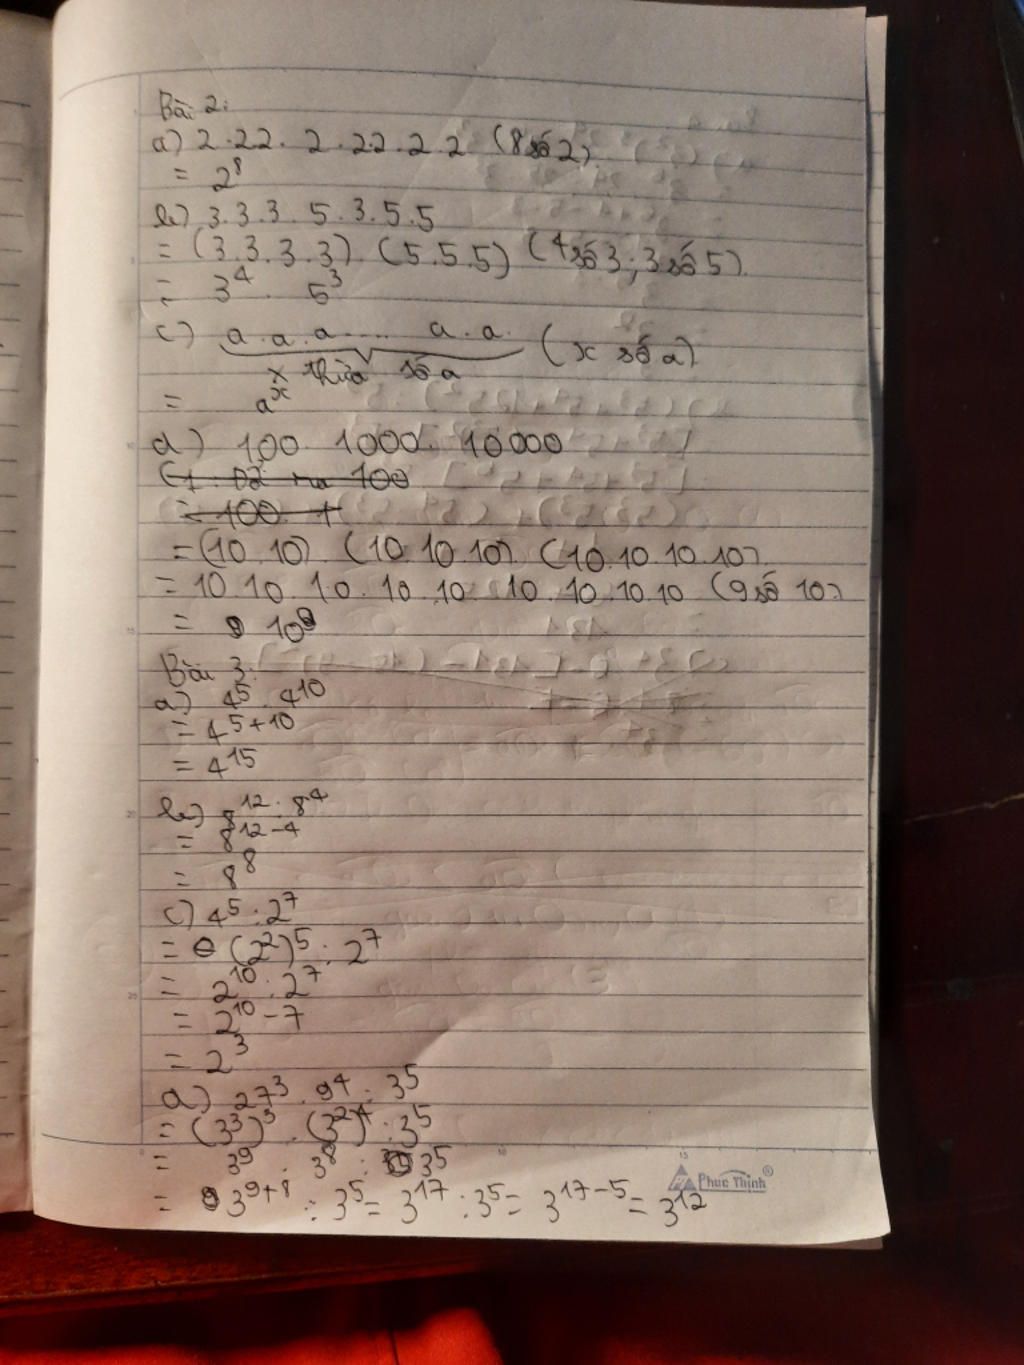 Bài 2:
a) 2.2.2. 2.2.2.2 2 (8 số 2)
= 2⁸
b) 3.3.3.5.3.5.5
= (3.3.3.3). (5.5.5) (4 số 3; 3 số 5)
= 3⁴. 5³
c) a.a.a.... a.a. (x số a)
x thừa số a
= aˣ
d) 100. 1000. 10000
= 100. 1
= (10.10). (10.10.10). (10.10.10.10)
= 10.10.10.10.10.10.10.10.10 (9 số 10)
= 10⁹
Bài 3:
a) 4⁵.4¹⁰
= 4⁵⁺¹⁰
= 4¹⁵
b) 8¹² : 8⁴
= 8¹²⁻⁴
= 8⁸
c) 4⁵ : 2⁷
= (2²)⁵ : 2⁷
= 2¹⁰ : 2⁷
= 2¹⁰⁻⁷
= 2³
d) 27³ . 9⁴ : 3⁵
= (3³)³ . (3²)⁴ : 3⁵
= 3⁹ . 3⁸ : 3⁵
= 3⁹⁺⁸ : 3⁵ = 3¹⁷ : 3⁵ = 3¹⁷⁻⁵ = 3¹²
Phuc Thinh®